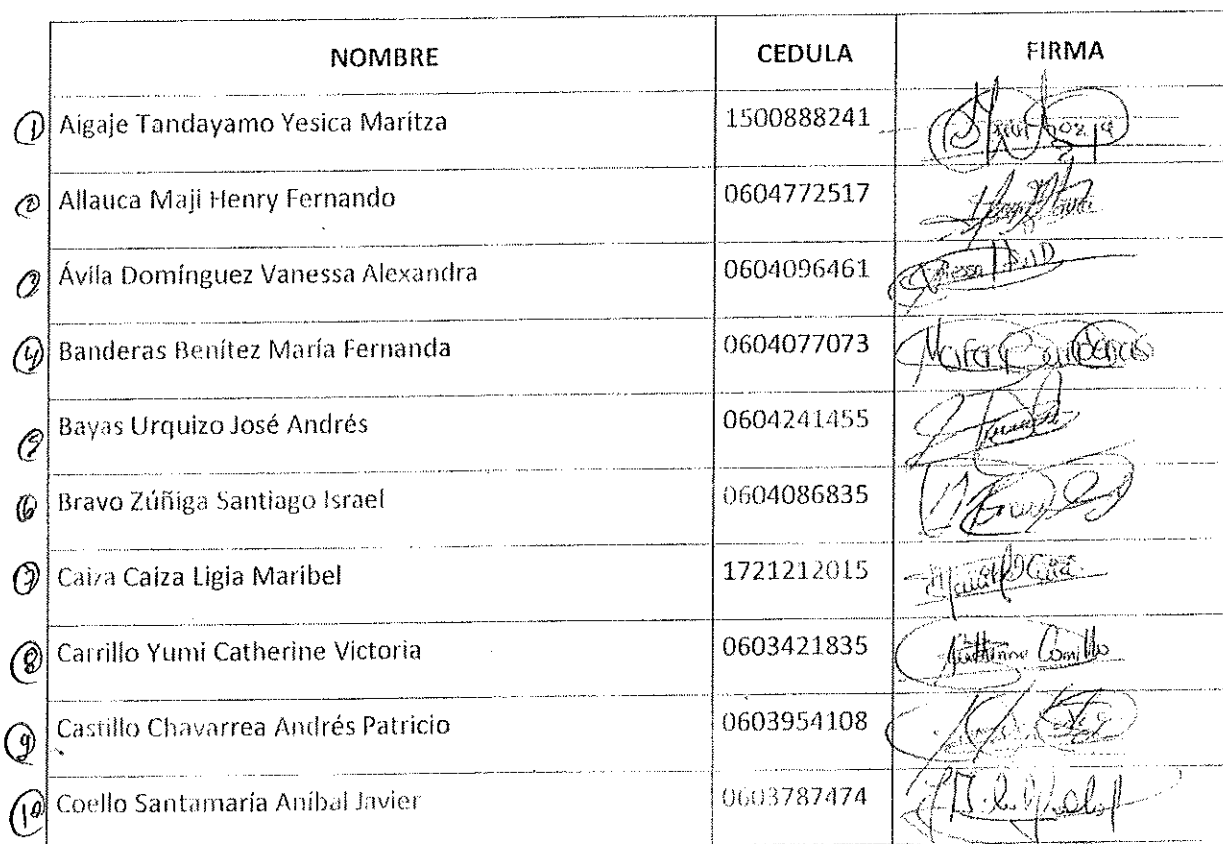 NOMBRE CEDULA FIRMA
1 Aigaje Tandayamo Yesica Maritza 1500888241
2 Allauca Maji Henry Fernando 0604772517
3 Ávila Domínguez Vanessa Alexandra 0604096461
4 Banderas Benítez María Fernanda 0604077073
5 Bayas Urquizo José Andrés 0604241455
6 Bravo Zúñiga Santiago Israel 0604086835
7 Caiza Caiza Ligia Maribel 1721212015
8 Carrillo Yumi Catherine Victoria 0603421835
9 Castillo Chavarrea Andrés Patricio 0603954108
10 Coello Santamaría Aníbal Javier 0603787474